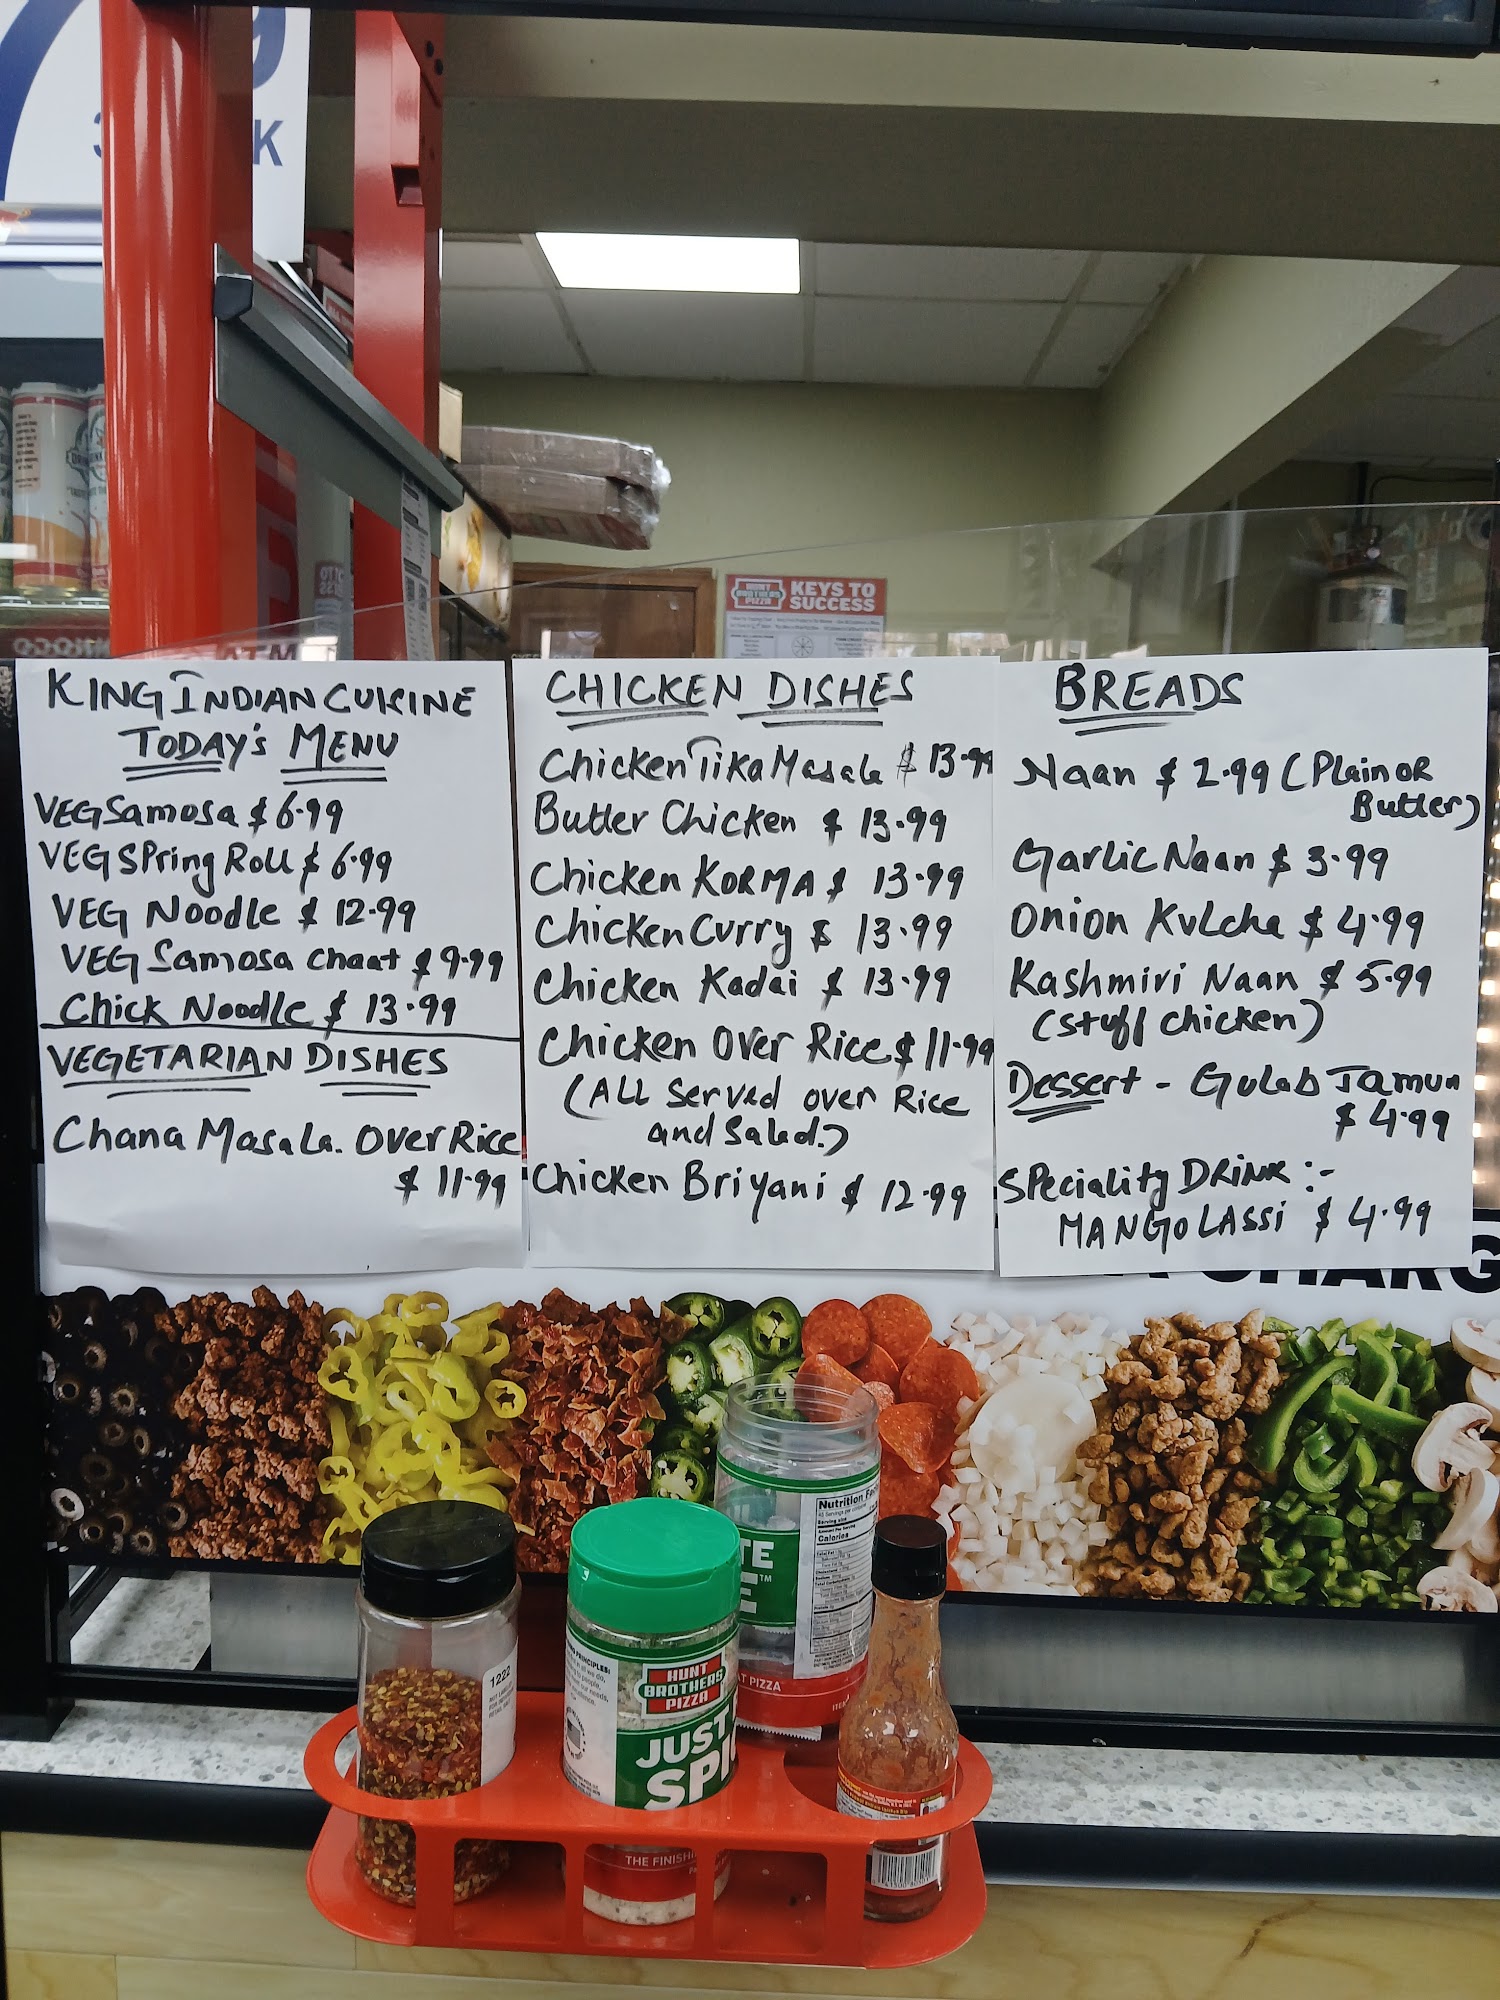 K
HUNT
BROTHERS
PIZZA
KEYS TO
SUCCESS
KING INDIAN CUISINE
TODAY'S MENU
VEG Samosa $ 6.99
VEG SPring Roll $ 6.99
VEG Noodle $ 12.99
VEG Samosa chaat $ 9.99
Chick Noodle $ 13.99
VEGETARIAN DISHES
Chana Masala. Over Rice
$ 11.99
CHICKEN DISHES
Chicken Tika Masala $ 13.99
Butter Chicken $ 13.99
Chicken KORMA $ 13.99
Chicken Curry $ 13.99
Chicken Kadai $ 13.99
Chicken Over Rice $ 11.99
(ALL Served over Rice
and Salad.)
Chicken Briyani $ 12.99
BREADS
Naan $ 2.99 (Plain OR
Butter)
Garlic Naan $ 3.99
Onion Kulcha $ 4.99
Kashmiri Naan $ 5.99
(stuff chicken)
Dessert - Gulab Jamun
$ 4.99
SPeciality DRINK :-
MANGO LASSI $ 4.99
Nutrition
Calories
1222
HUNT
BROTHERS
PIZZA
JUST
SPI
THE FINISHI
PIZZA